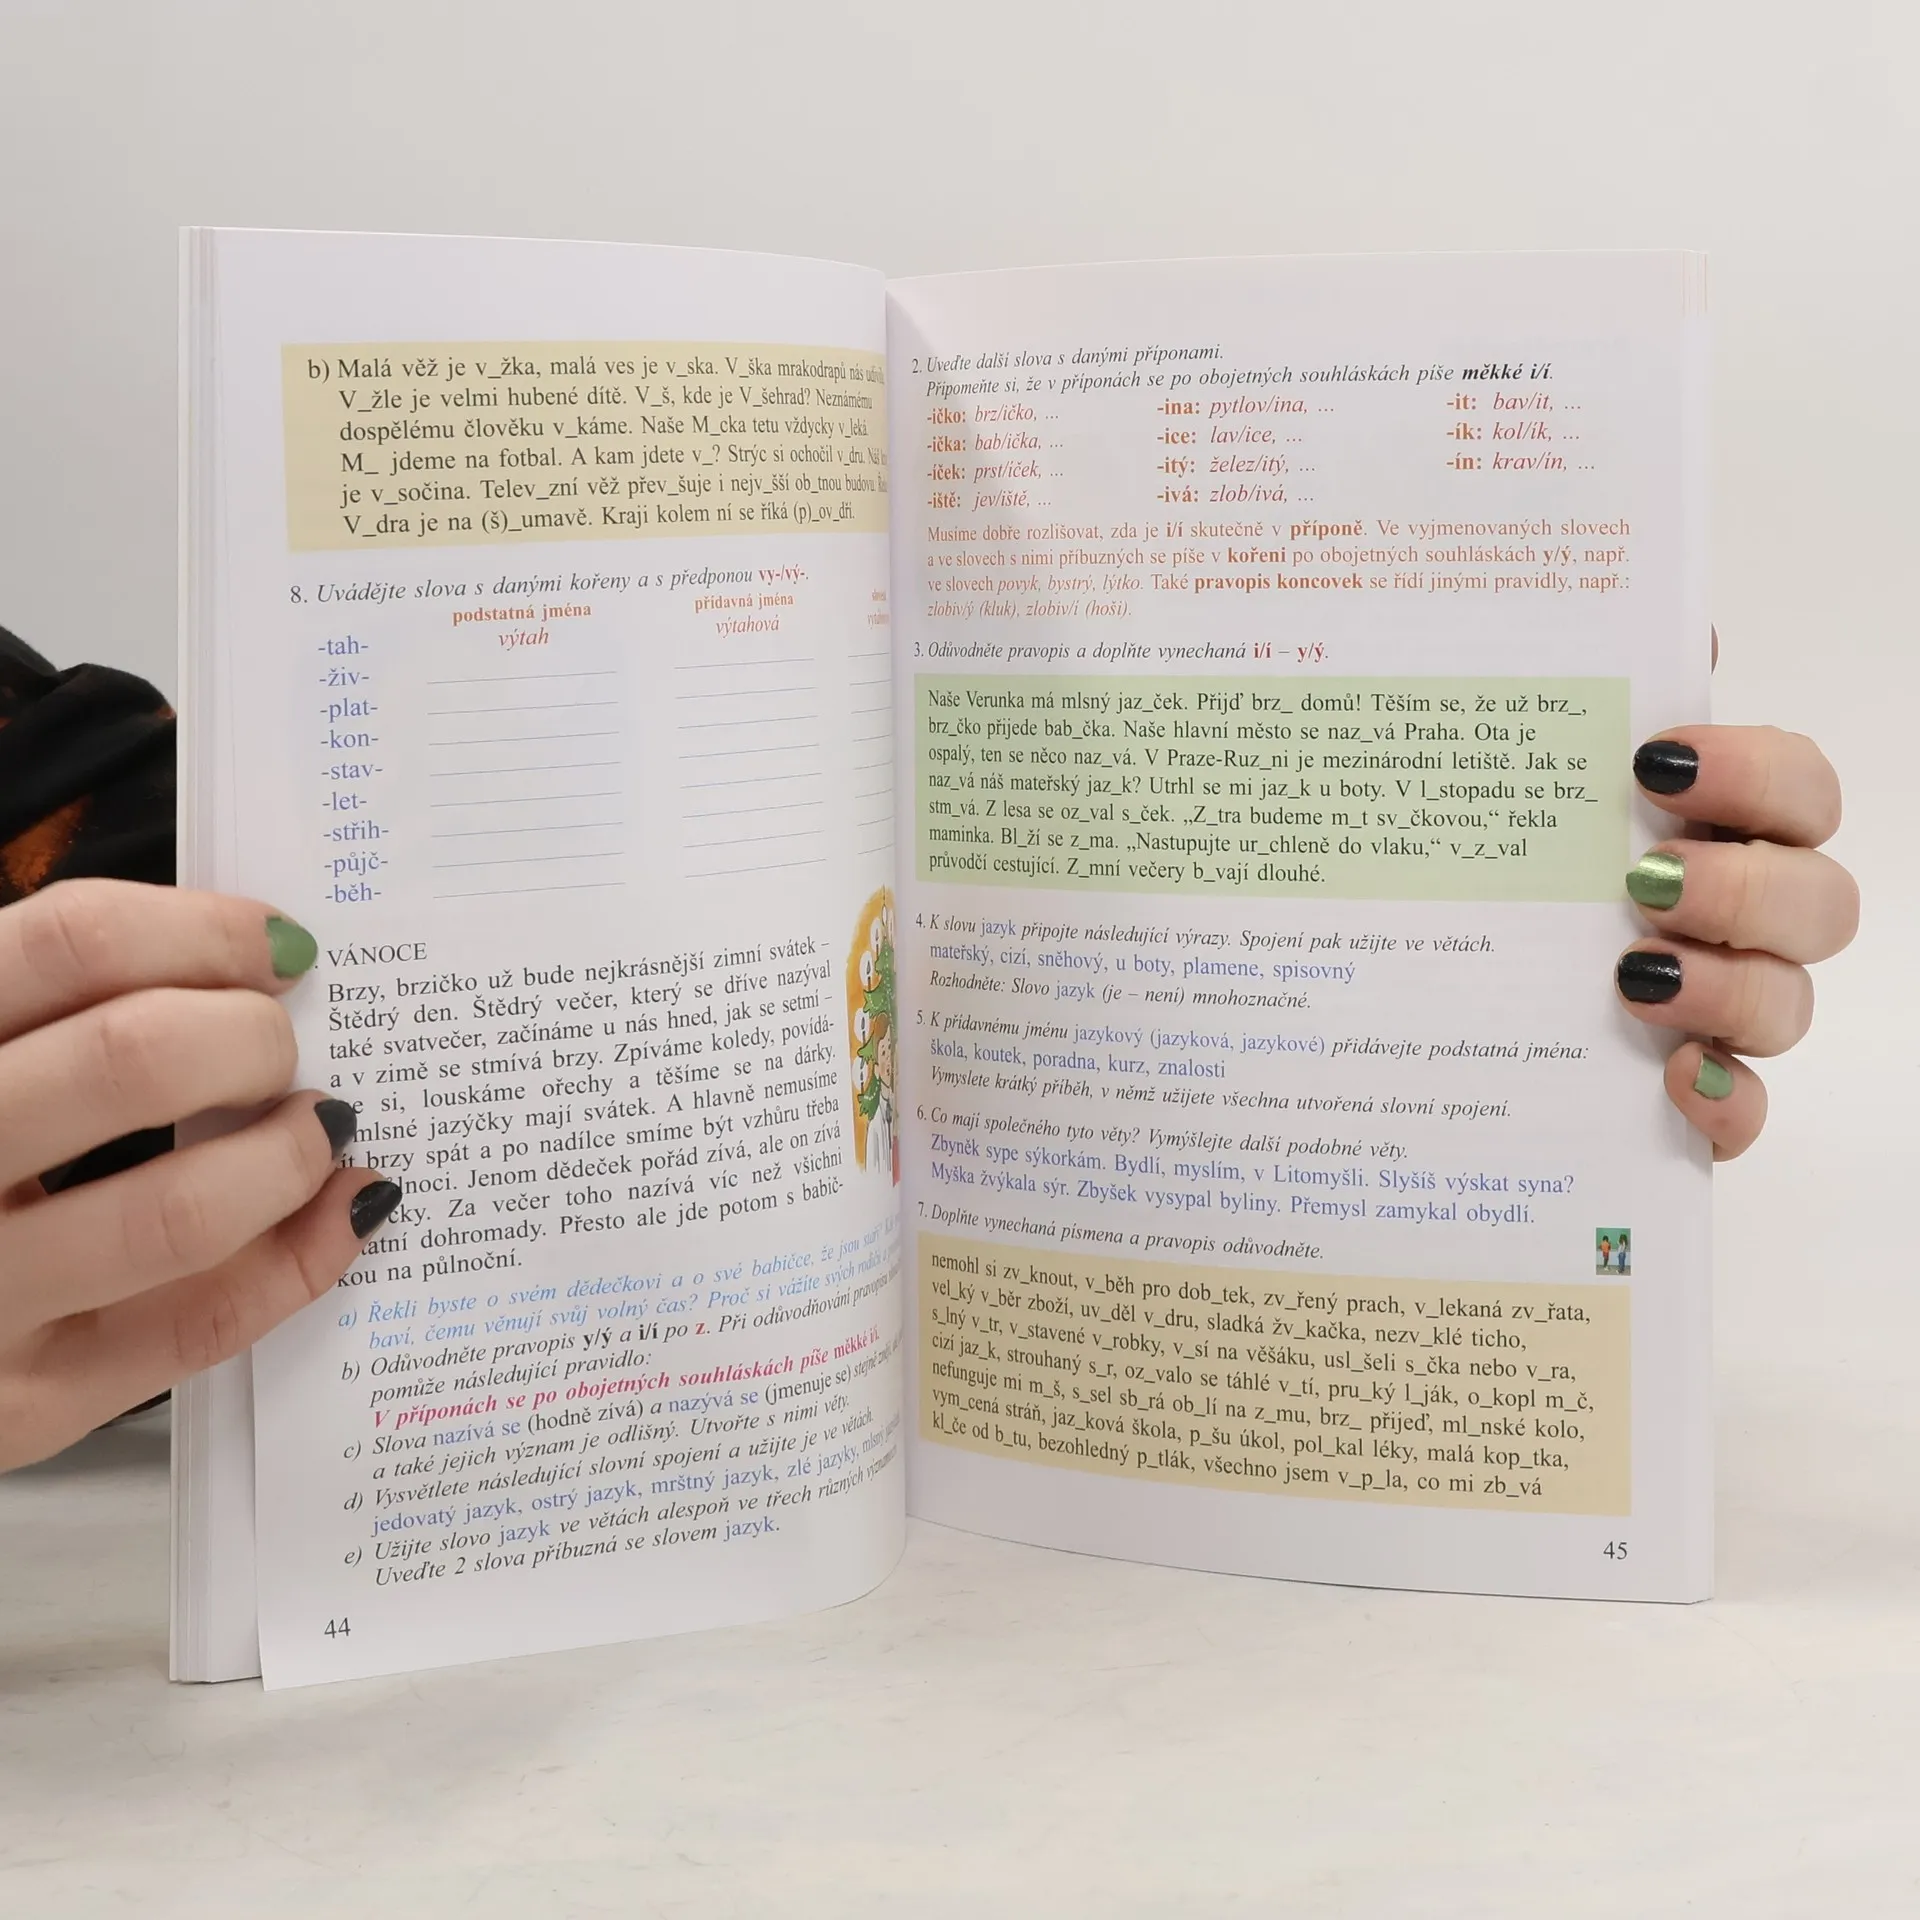 b) Malá věž je v_žka, malá ves je v_ska. V_ška mrakodrapů nás
V_žle je velmi hubené dítě. V_š, kde je V_šehrad? Neznámému
dospělému člověku v_káme. Naše M_cka tetu vždycky v_leká.
M_ jdeme na fotbal. A kam jdete v_? Strýc si ochočil v_dru. Náš
je v_sočina. Telev_zní věž přev_šuje i nejv_šší ob_tnou budovu.
V_dra je na (š)_umavě. Kraji kolem ní se říká (p)_ov_dří.
8. Uvádějte slova s danými kořeny a s předponou vy-/vý-.
podstatná jména přídavná jména
-tah- výtah výtahová
-živ-
-plat-
-kon-
-stav-
-let-
-střih-
-půjč-
-běh-
VÁNOCE
Brzy, brzičko už bude nejkrásnější zimní svátek –
Štědrý den. Štědrý večer, který se dříve nazýval
také svatvečer, začínáme u nás hned, jak se setmí –
a v zimě se stmívá brzy. Zpíváme koledy, povídá-
si, louskáme ořechy a těšíme se na dárky.
mlsné jazýčky mají svátek. A hlavně nemusíme
brzy spát a po nadílce smíme být vzhůru třeba
Jenom dědeček pořád zívá, ale on zívá
Za večer toho nazívá víc než všichni
dohromady. Přesto ale jde potom s babič-
kou na půlnoční.
a) Řekli byste o svém dědečkovi a o své babičce, že jsou staří?
baví, čemu věnují svůj volný čas? Proč si vážíte svých rodičů a
b) Odůvodněte pravopis y/ý a i/í po z. Při odůvodňování pravopisu
pomůže následující pravidlo:
V příponách se po obojetných souhláskách píše měkké i/í.
c) Slova nazívá se (hodně zívá) a nazývá se (jmenuje se) stejně
a také jejich význam je odlišný. Utvořte s nimi věty.
d) Vysvětlete následující slovní spojení a užijte je ve větách.
jedovatý jazyk, ostrý jazyk, mrštný jazyk, zlé jazyky, mlsný
e) Užijte slovo jazyk ve větách alespoň ve třech různých významech.
Uveďte 2 slova příbuzná se slovem jazyk.
44
2. Uveďte další slova s danými příponami.
Připomeňte si, že v příponách se po obojetných souhláskách píše měkké i/í.
-ičko: brz/ičko, ... -ina: pytlov/ina, ... -it: bav/it, ...
-ička: bab/ička, ... -ice: lav/ice, ... -ík: kol/ík, ...
-íček: prst/íček, ... -itý: želez/itý, ... -ín: krav/ín, ...
-iště: jev/iště, ... -ivá: zlob/ivá, ...
Musíme dobře rozlišovat, zda je i/í skutečně v příponě. Ve vyjmenovaných slovech
a ve slovech s nimi příbuzných se píše v kořeni po obojetných souhláskách y/ý, např.
ve slovech povyk, bystrý, lýtko. Také pravopis koncovek se řídí jinými pravidly, např.:
zlobiv/ý (kluk), zlobiv/í (hoši).
3. Odůvodněte pravopis a doplňte vynechaná i/í – y/ý.
Naše Verunka má mlsný jaz_ček. Přijď brz_ domů! Těším se, že už brz_,
brz_čko přijede bab_čka. Naše hlavní město se naz_vá Praha. Ota je
ospalý, ten se něco naz_vá. V Praze-Ruz_ni je mezinárodní letiště. Jak se
naz_vá náš mateřský jaz_k? Utrhl se mi jaz_k u boty. V l_stopadu se brz_
stm_vá. Z lesa se oz_val s_ček. „Z_tra budeme m_t sv_čkovou,“ řekla
maminka. Bl_ží se z_ma. „Nastupujte ur_chleně do vlaku,“ v_z_val
průvodčí cestující. Z_mní večery b_vají dlouhé.
4. K slovu jazyk připojte následující výrazy. Spojení pak užijte ve větách.
mateřský, cizí, sněhový, u boty, plamene, spisovný
Rozhodněte: Slovo jazyk (je – není) mnohoznačné.
5. K přídavnému jménu jazykový (jazyková, jazykové) přidávejte podstatná jména:
škola, koutek, poradna, kurz, znalosti
Vymyslete krátký příběh, v němž užijete všechna utvořená slovní spojení.
6. Co mají společného tyto věty? Vymýšlejte další podobné věty.
Zbyněk sype sýkorkám. Bydlí, myslím, v Litomyšli. Slyšíš výskat syna?
Myška žvýkala sýr. Zbyšek vysypal byliny. Přemysl zamykal obydlí.
7. Doplňte vynechaná písmena a pravopis odůvodněte.
nemohl si zv_knout, v_běh pro dob_tek, zv_řený prach, v_lekaná zv_řata,
vel_ký v_běr zboží, uv_děl v_dru, sladká žv_kačka, nezv_klé ticho,
s_lný v_tr, v_stavené v_robky, v_sí na věšáku, usl_šeli s_čka nebo v_ra,
cizí jaz_k, strouhaný s_r, oz_valo se táhlé v_tí, pru_ký l_ják, o_kopl m_č,
nefunguje mi m_š, s_sel sb_rá ob_lí na z_mu, brz_ přijeď, ml_nské kolo,
vym_cená stráň, jaz_ková škola, p_šu úkol, pol_kal léky, malá kop_tka,
kl_če od b_tu, bezohledný p_tlák, všechno jsem v_p_la, co mi zb_vá
45